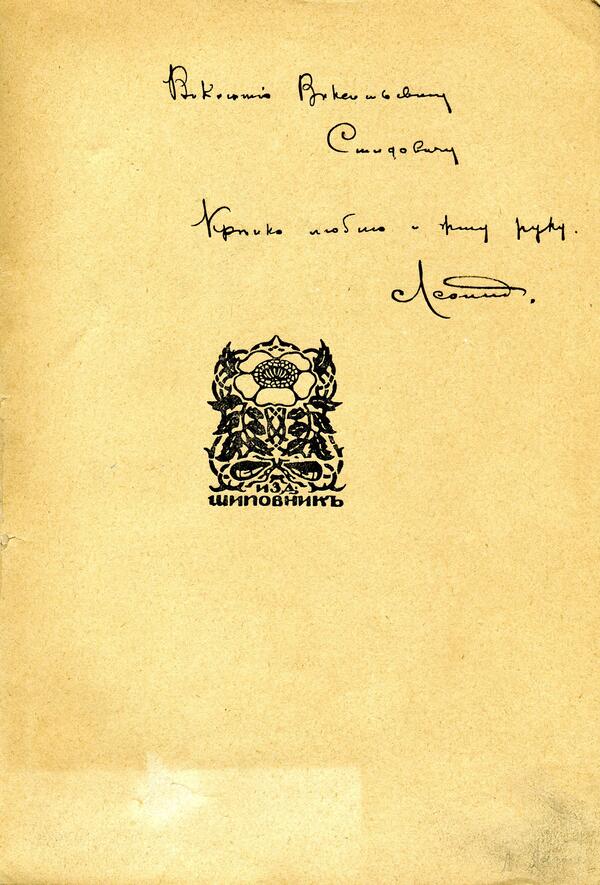 Викентію Викентьевичу
Смидовичу
Крѣпко люблю и жму руку.
Леонид.
ИЗД:
ШИПОВНИКЪ